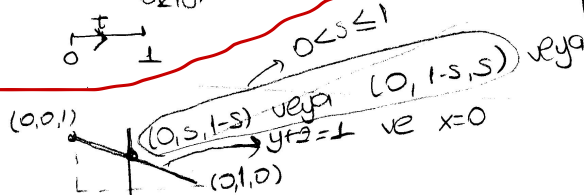 I
0 1
0<s≤1
(0,0,1) (0,s,1-s) veya (0, 1-s, s) veya
y+z=1 ve x=0
(0,1,0)